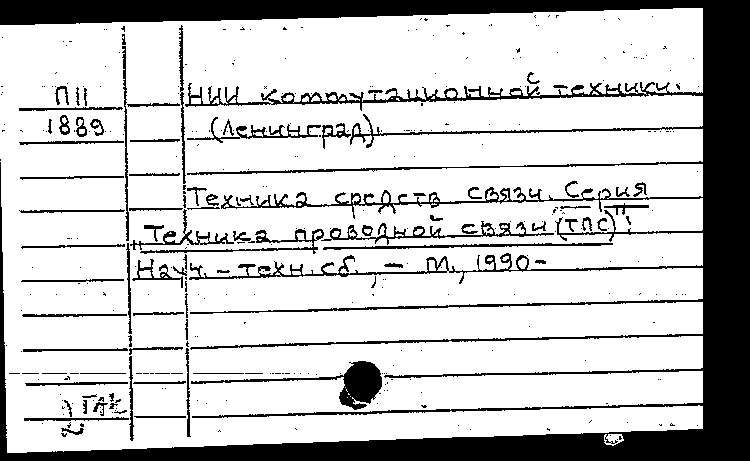 П11
1889
НИИ коммутационной техники.
(Ленинград).
Техника средств связи. Серия
"Техника проводной связи (ТПС)":
Науч. - техн. сб., - М., 1990-